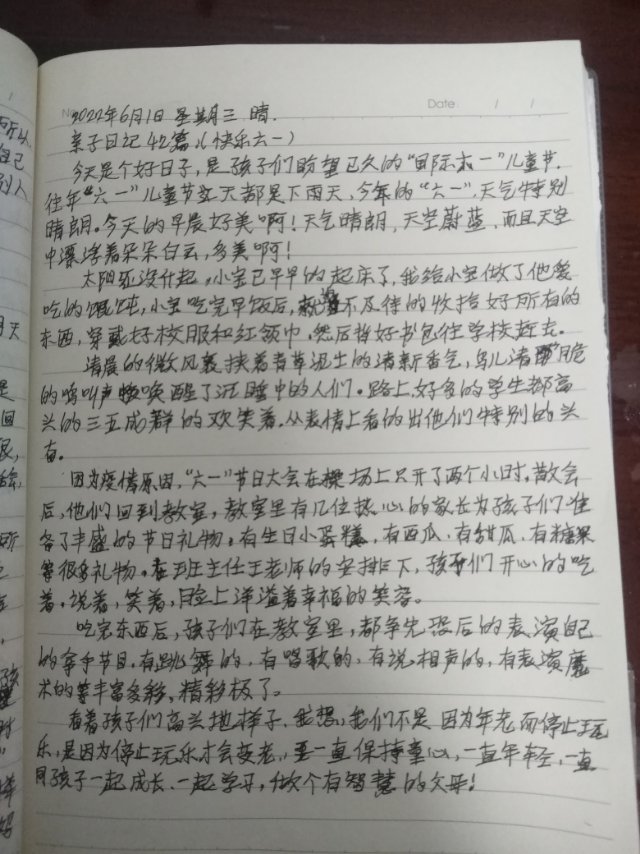 No
Date: / /
2022年6月1日 星期三 晴.
亲子日记42篇(快乐六一)
今天是个好日子,是孩子们盼望已久的"国际六一"儿童节.
往年"六一"儿童节天都是下雨天,今年的"六一",天气特别
晴朗。今天的早晨好美啊!天气晴朗,天空蔚蓝,而且天空
中漂浮着朵朵白云,多美啊!
太阳还没升起,小宝已早早的起床了,我给小宝做了他爱
吃的馄饨,小宝吃完早饭后,就迫不及待的收拾好所有的
东西,穿戴好校服和红领巾,然后背好书包往学校赶去。
清晨的微风裹挟着青草泥土的清新香气,鸟儿清脆
的鸣叫声唤醒了沉睡中的人们。路上,好多的学生都高
兴的三五成群的欢笑着,从表情上看的出他们特别的兴
奋。
因为疫情原因,"六一"节日大会在操场上只开了两个小时,散会
后,他们回到教室,教室里有几位热心的家长为孩子们准
备了丰盛的节日礼物。有生日小蛋糕,有西瓜、有甜瓜、有糖果
等很多礼物。在班主任王老师的安排下,孩子们开心的吃
着,说着,笑着,脸上洋溢着幸福的笑容。
吃完东西后,孩子们在教室里,都争先恐后的表演自己
的拿手节目,有跳舞的,有唱歌的,有说相声的,有表演魔
术的等丰富多彩,精彩极了。
看着孩子们高兴地样子,我想,我们不是因为年老而停止玩
乐,是因为停止玩乐才会变老,要一直保持童心,一直年轻,一直
同孩子一起成长、一起学习,做个有智慧的父母!